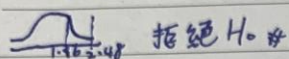 1.96 2.48 拒絕 H₀ #